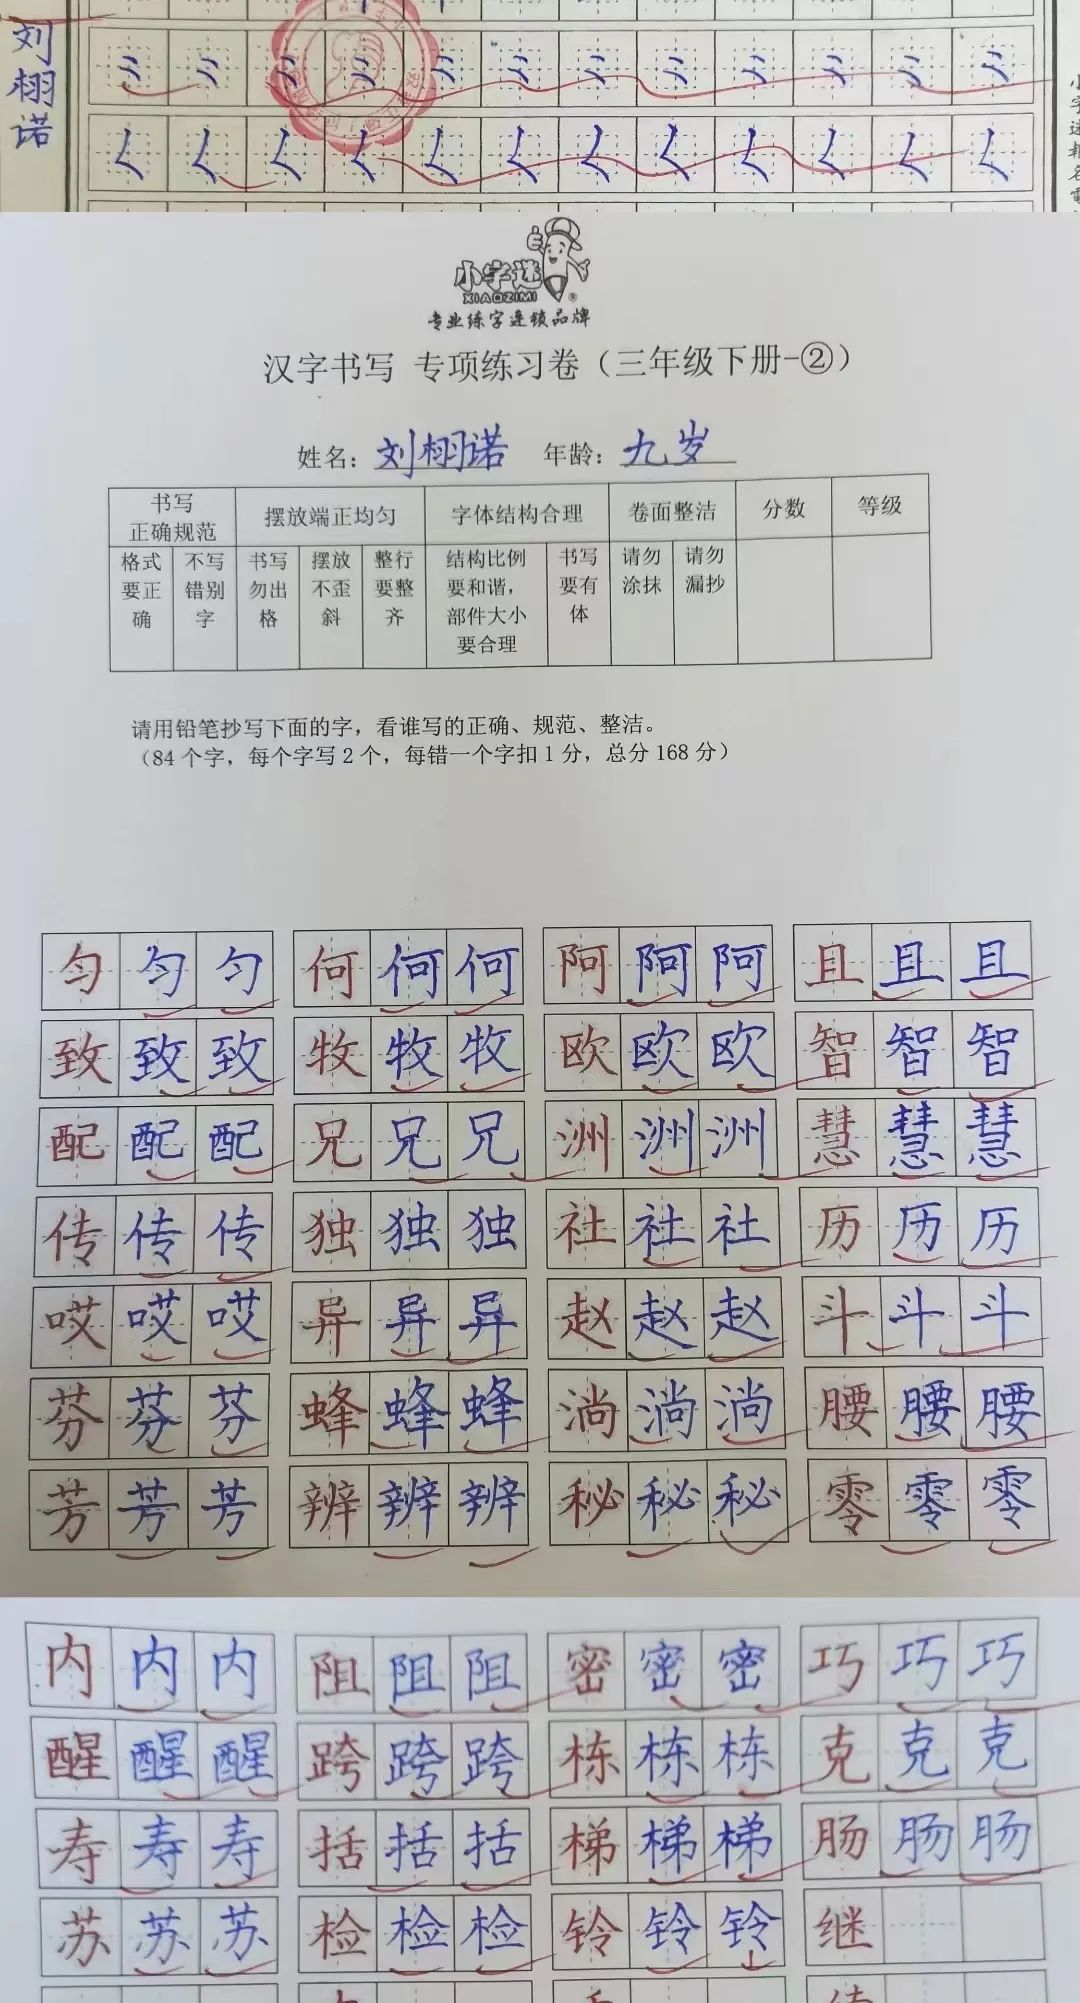 刘栩诺
小字迷
XIAOZIMI
专业练字连锁品牌
汉字书写 专项练习卷（三年级下册-②）
姓名：刘栩诺 年龄：九岁
书写正确规范 摆放端正均匀 字体结构合理 卷面整洁 分数 等级
格式要正确 不写错别字 书写勿出格 摆放不歪斜 整行要整齐 结构比例要和谐，部件大小要合理 书写要有体 请勿涂抹 请勿漏抄
请用铅笔抄写下面的字，看谁写的正确、规范、整洁。
（84 个字，每个字写 2 个，每错一个字扣 1 分，总分 168 分）
匀匀匀 何何何 阿阿阿 且且且
致致致 牧牧牧 欧欧欧 智智智
配配配 兄兄兄 洲洲洲 慧慧慧
传传传 独独独 社社社 历历历
哎哎哎 异异异 赵赵赵 斗斗斗
芬芬芬 蜂蜂蜂 淌淌淌 腰腰腰
芳芳芳 辨辨辨 秘秘秘 零零零
内内内 阻阻阻 密密密 巧巧巧
醒醒醒 跨跨跨 栋栋栋 克克克
寿寿寿 括括括 梯梯梯 肠肠肠
苏苏苏 检检检 铃铃铃 继